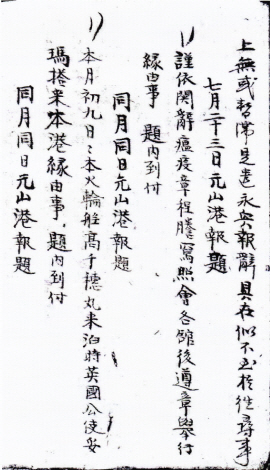 上無或暫滯是遣永兵報辭具在似不至於往尋事
七月二十三日元山港報題
謹依関辭瘟疫章程謄寫照會各館後遵章舉行
緣由事 題內到付
同月同日元山港報題
本月初九日日本火輪船高千穗丸来泊時英國公使妥
瑪搭来本港緣由事 題內到付
同月同日元山港報題